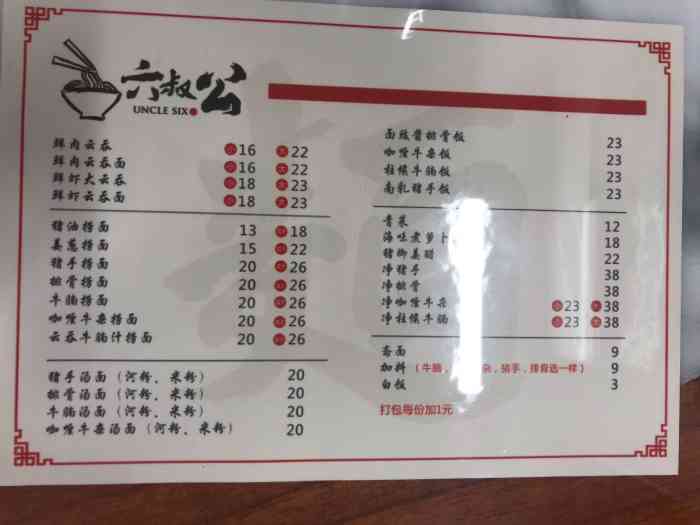 六叔公
UNCLE SIX
鲜肉云吞 小16 大22
鲜肉云吞面 小16 大22
鲜虾大云吞 小18 大23
鲜虾云吞面 小18 大23
猪油捞面 13 大18
姜葱捞面 15 大22
猪手捞面 20 大26
排骨捞面 20 大26
牛腩捞面 20 大26
咖喱牛杂捞面 20 大26
云吞牛腩汁捞面 20 大26
猪手汤面（河粉、米粉） 20
排骨汤面（河粉、米粉） 20
牛腩汤面（河粉、米粉） 20
咖喱牛杂汤面（河粉、米粉） 20
面豉酱排骨饭 23
咖喱牛杂饭 23
柱候牛腩饭 23
南乳猪手饭 23
青菜 12
海味煮萝卜 18
猪脚姜醋 22
净猪手 38
净排骨 38
净咖喱牛杂 小23 大38
净柱候牛腩 小23 大38
斋面 9
加料（牛腩，杂，猪手，排骨选一样） 9
白饭 3
打包每份加1元
麵